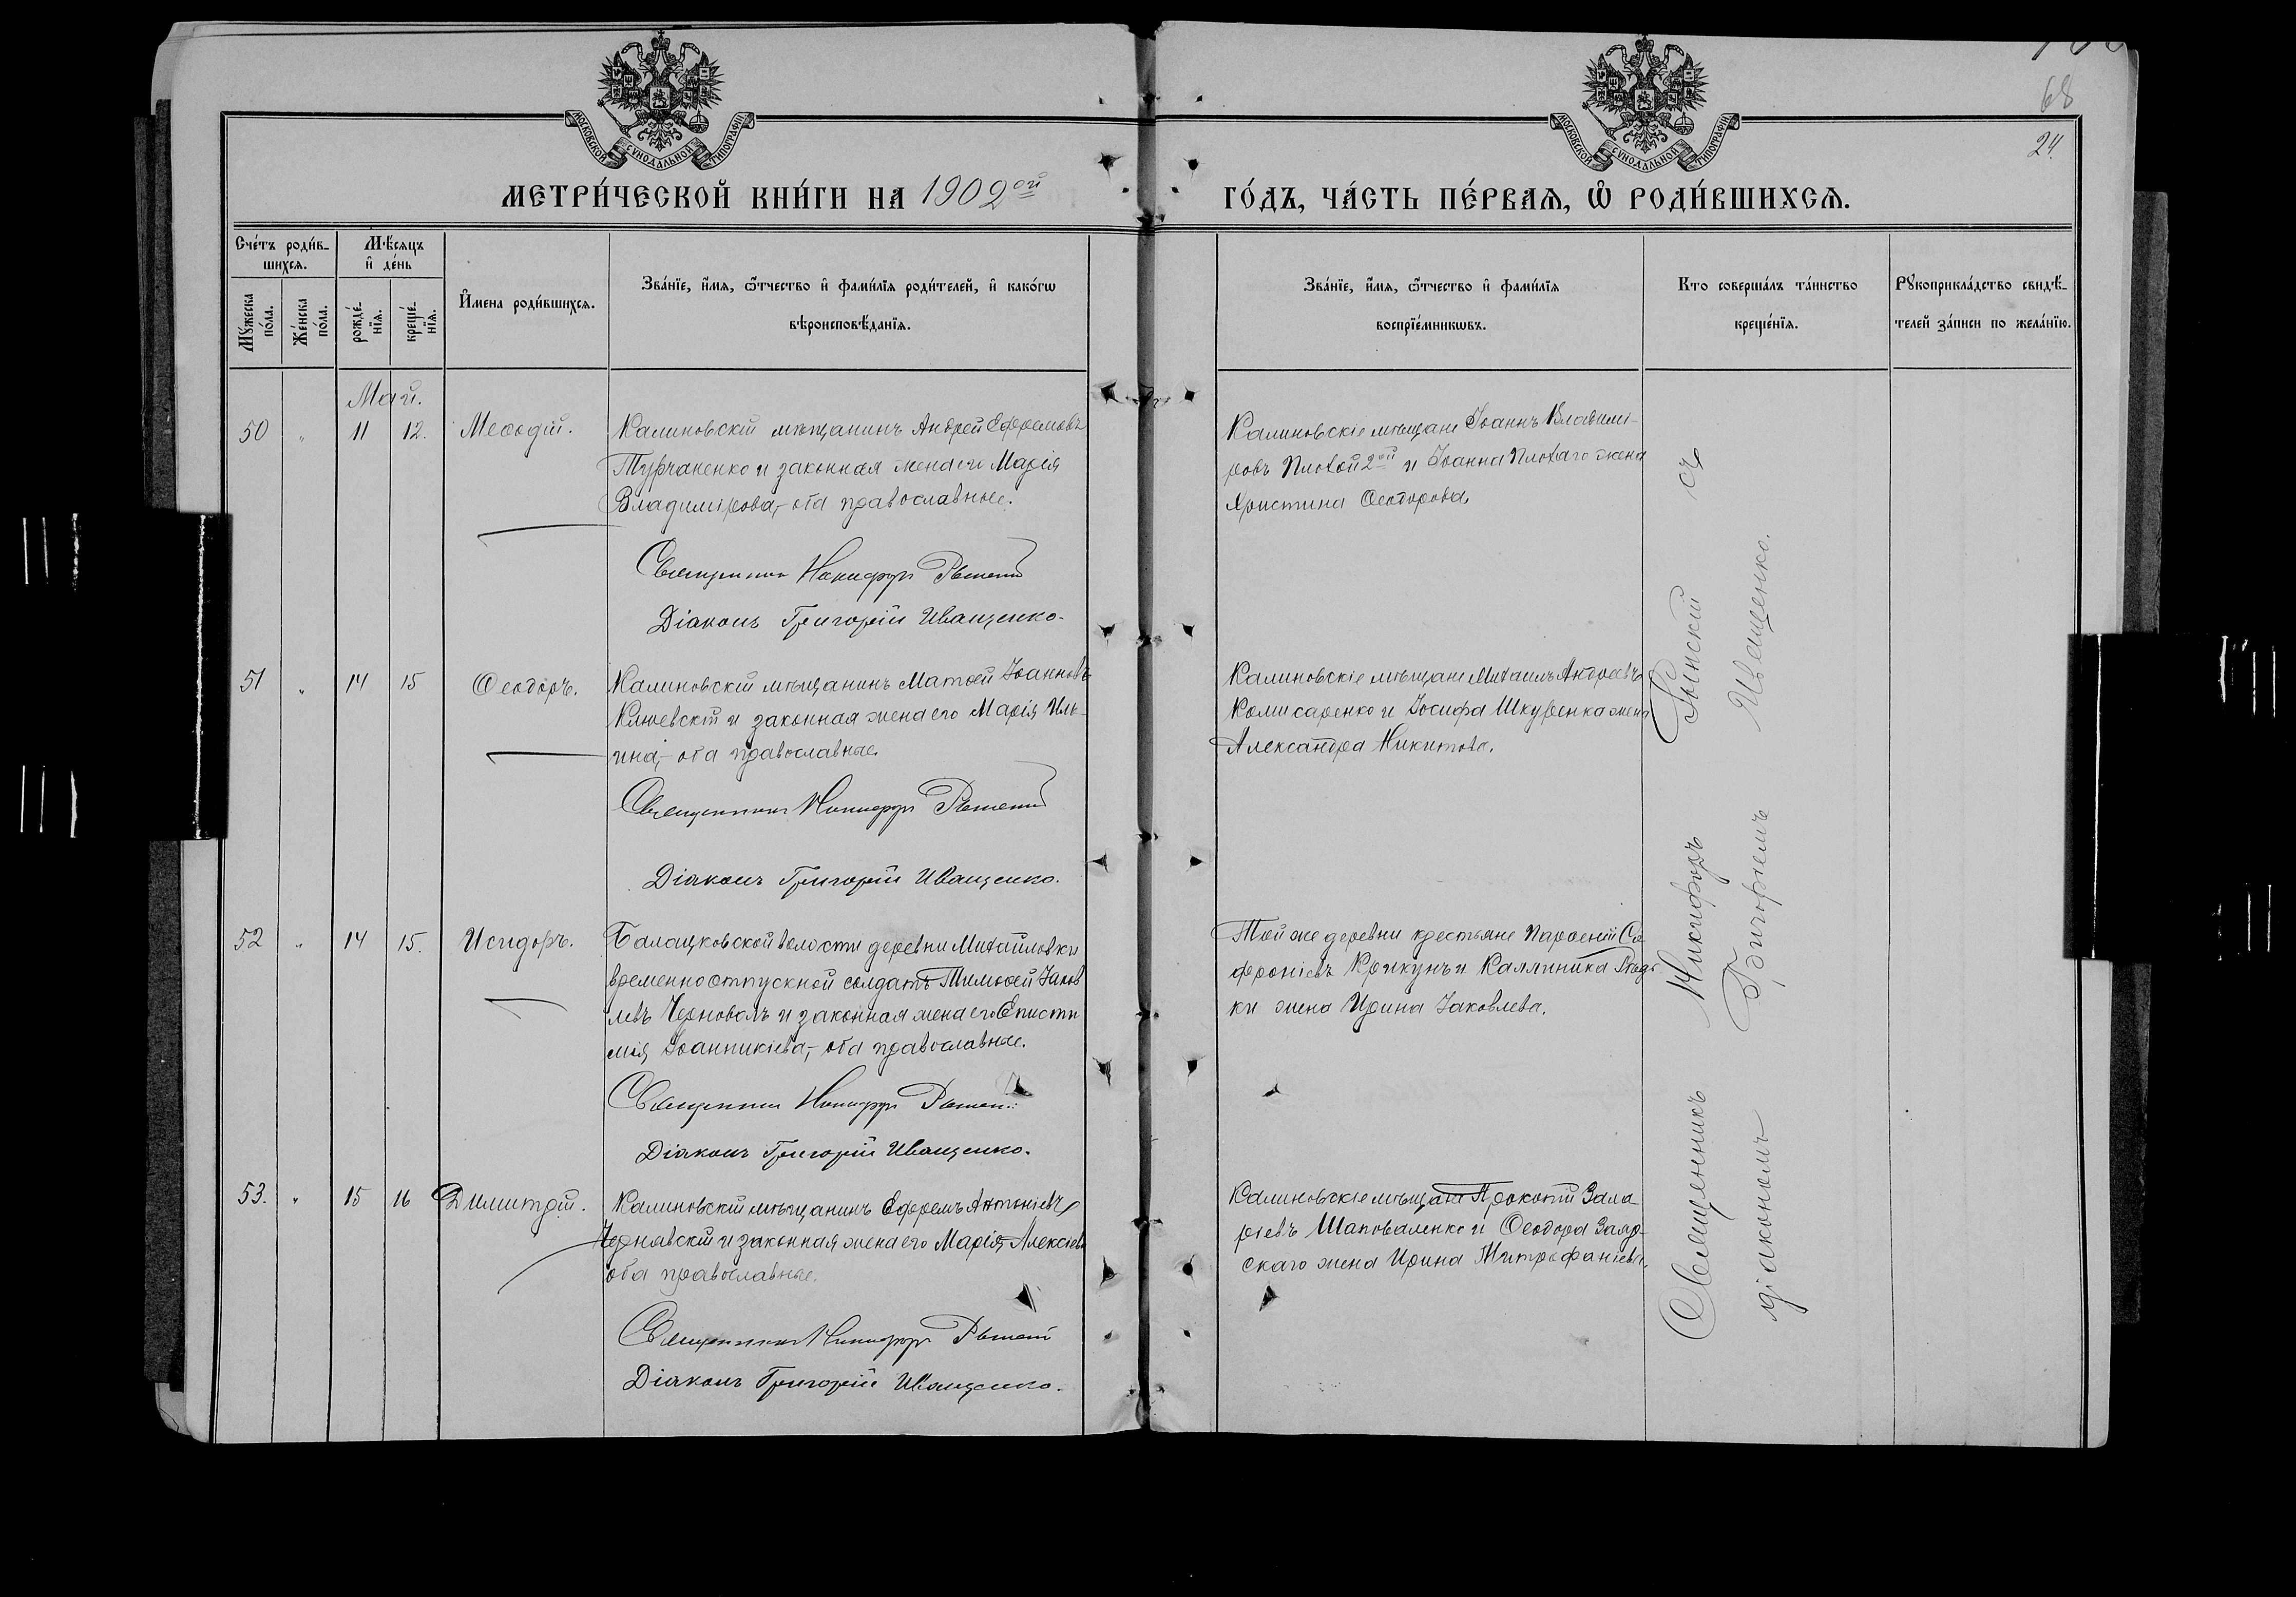 МОСКОВСКОЙ СѴНОДАЛЬНОЙ ТИПОГРАФІИ
МОСКОВСКОЙ СѴНОДАЛЬНОЙ ТИПОГРАФІИ
68
24.
МЕТРИ́ЧЕСКОЙ КНИ́ГИ НА 1902ой
ГО́ДЪ, ЧА́СТЬ ПЕ́РВАѦ, Ѡ҆ РОДИ́ВШИХСѦ.
Сче́тъ роди́в-
шихсѧ.
Мꙋ́жеска
по́ла.
Же́нска
по́ла.
Мѣ́сѧцъ
и҆ де́нь
рожде́-
нїѧ.
креще́-
нїѧ.
И҆мена роди́вшихсѧ.
Зва́нїе, и҆́мѧ, ѻ҆́тчество и҆ фами́лїѧ роди́телей, и҆ како́гѡ
вѣроисповѣ́данїѧ.
Зва́нїе, и҆́мѧ, ѻ҆́тчество и҆ фами́лїѧ
воспрїе́мникѡвъ.
Кто соверша́лъ та́инство
креще́нїѧ.
Рꙋкоприкла́дство свидѣ́-
телей за́писи по жела́нїю.
Май.
50 " 11 12. Меѳодій.
Калиновскій мѣщанинъ Андрей Ефремовъ
Турчаненко и законная жена его Марія
Владимірова,- оба православные.
Священникъ Никифоръ
Діаконъ Григорій Иващенко.
Калиновскіе мѣщане Іоаннъ Владимі-
ровъ Плохой 2ой и Іоанна Плохаго жена
Христина Ѳеодорова.
51 " 14 15 Ѳеодоръ.
Калиновскій мѣщанинъ Матѳей Іоанновъ
Клюевскій и законная жена его Марія Иль-
ина,- оба православные.
Священникъ Никифоръ
Діаконъ Григорій Иващенко.
Калиновскіе мѣщане Михаилъ Андреевъ
Комисаренко и Іосифа Шкуренка жена
Александра Никитова.
52 " 14 15. Исидоръ.
Балацковской волости деревни Михайловки
временно отпускной солдатъ Тимоѳей Іаков
левъ Черноволъ и законная жена его Епистп
мія Іоанникіева,- оба православные.
Священникъ Никифоръ
Діаконъ Григорій Иващенко.
Той же деревни крестьяне Парѳеній Со-
фроніевъ Крикунъ и Каллиника
ки жена Ирина Іаковлева.
53. " 15 16 Димитрій.
Калиновскій мѣщанинъ Ефремъ Антоніевъ
Чернявскій и законная жена его Марія Алексіева
оба православные.
Священникъ Никифоръ
Діаконъ Григорій Иващенко.
Калиновскіе мѣщане Прокопій Зала-
ріевъ Шаповаленко и Ѳеодора
скаго жена Ирина Митрофаніева.
Священникъ Никифоръ съ
діакономъ Григоріемъ Иващенко.